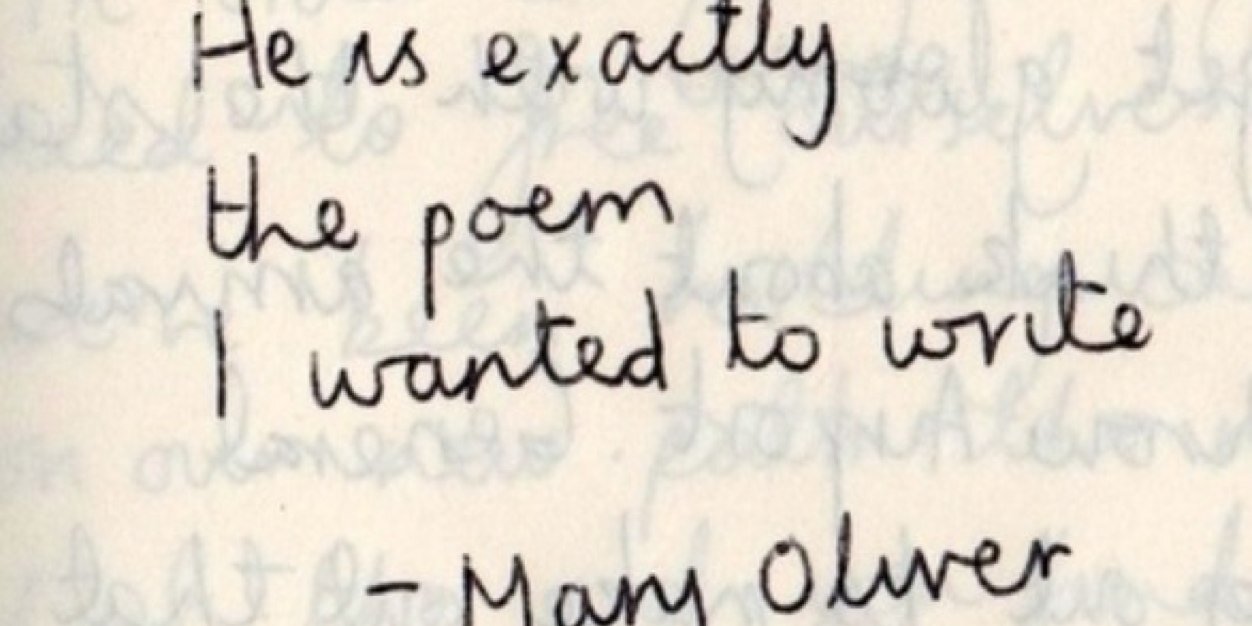 He is exactly
the poem
I wanted to write
- Mary Oliver